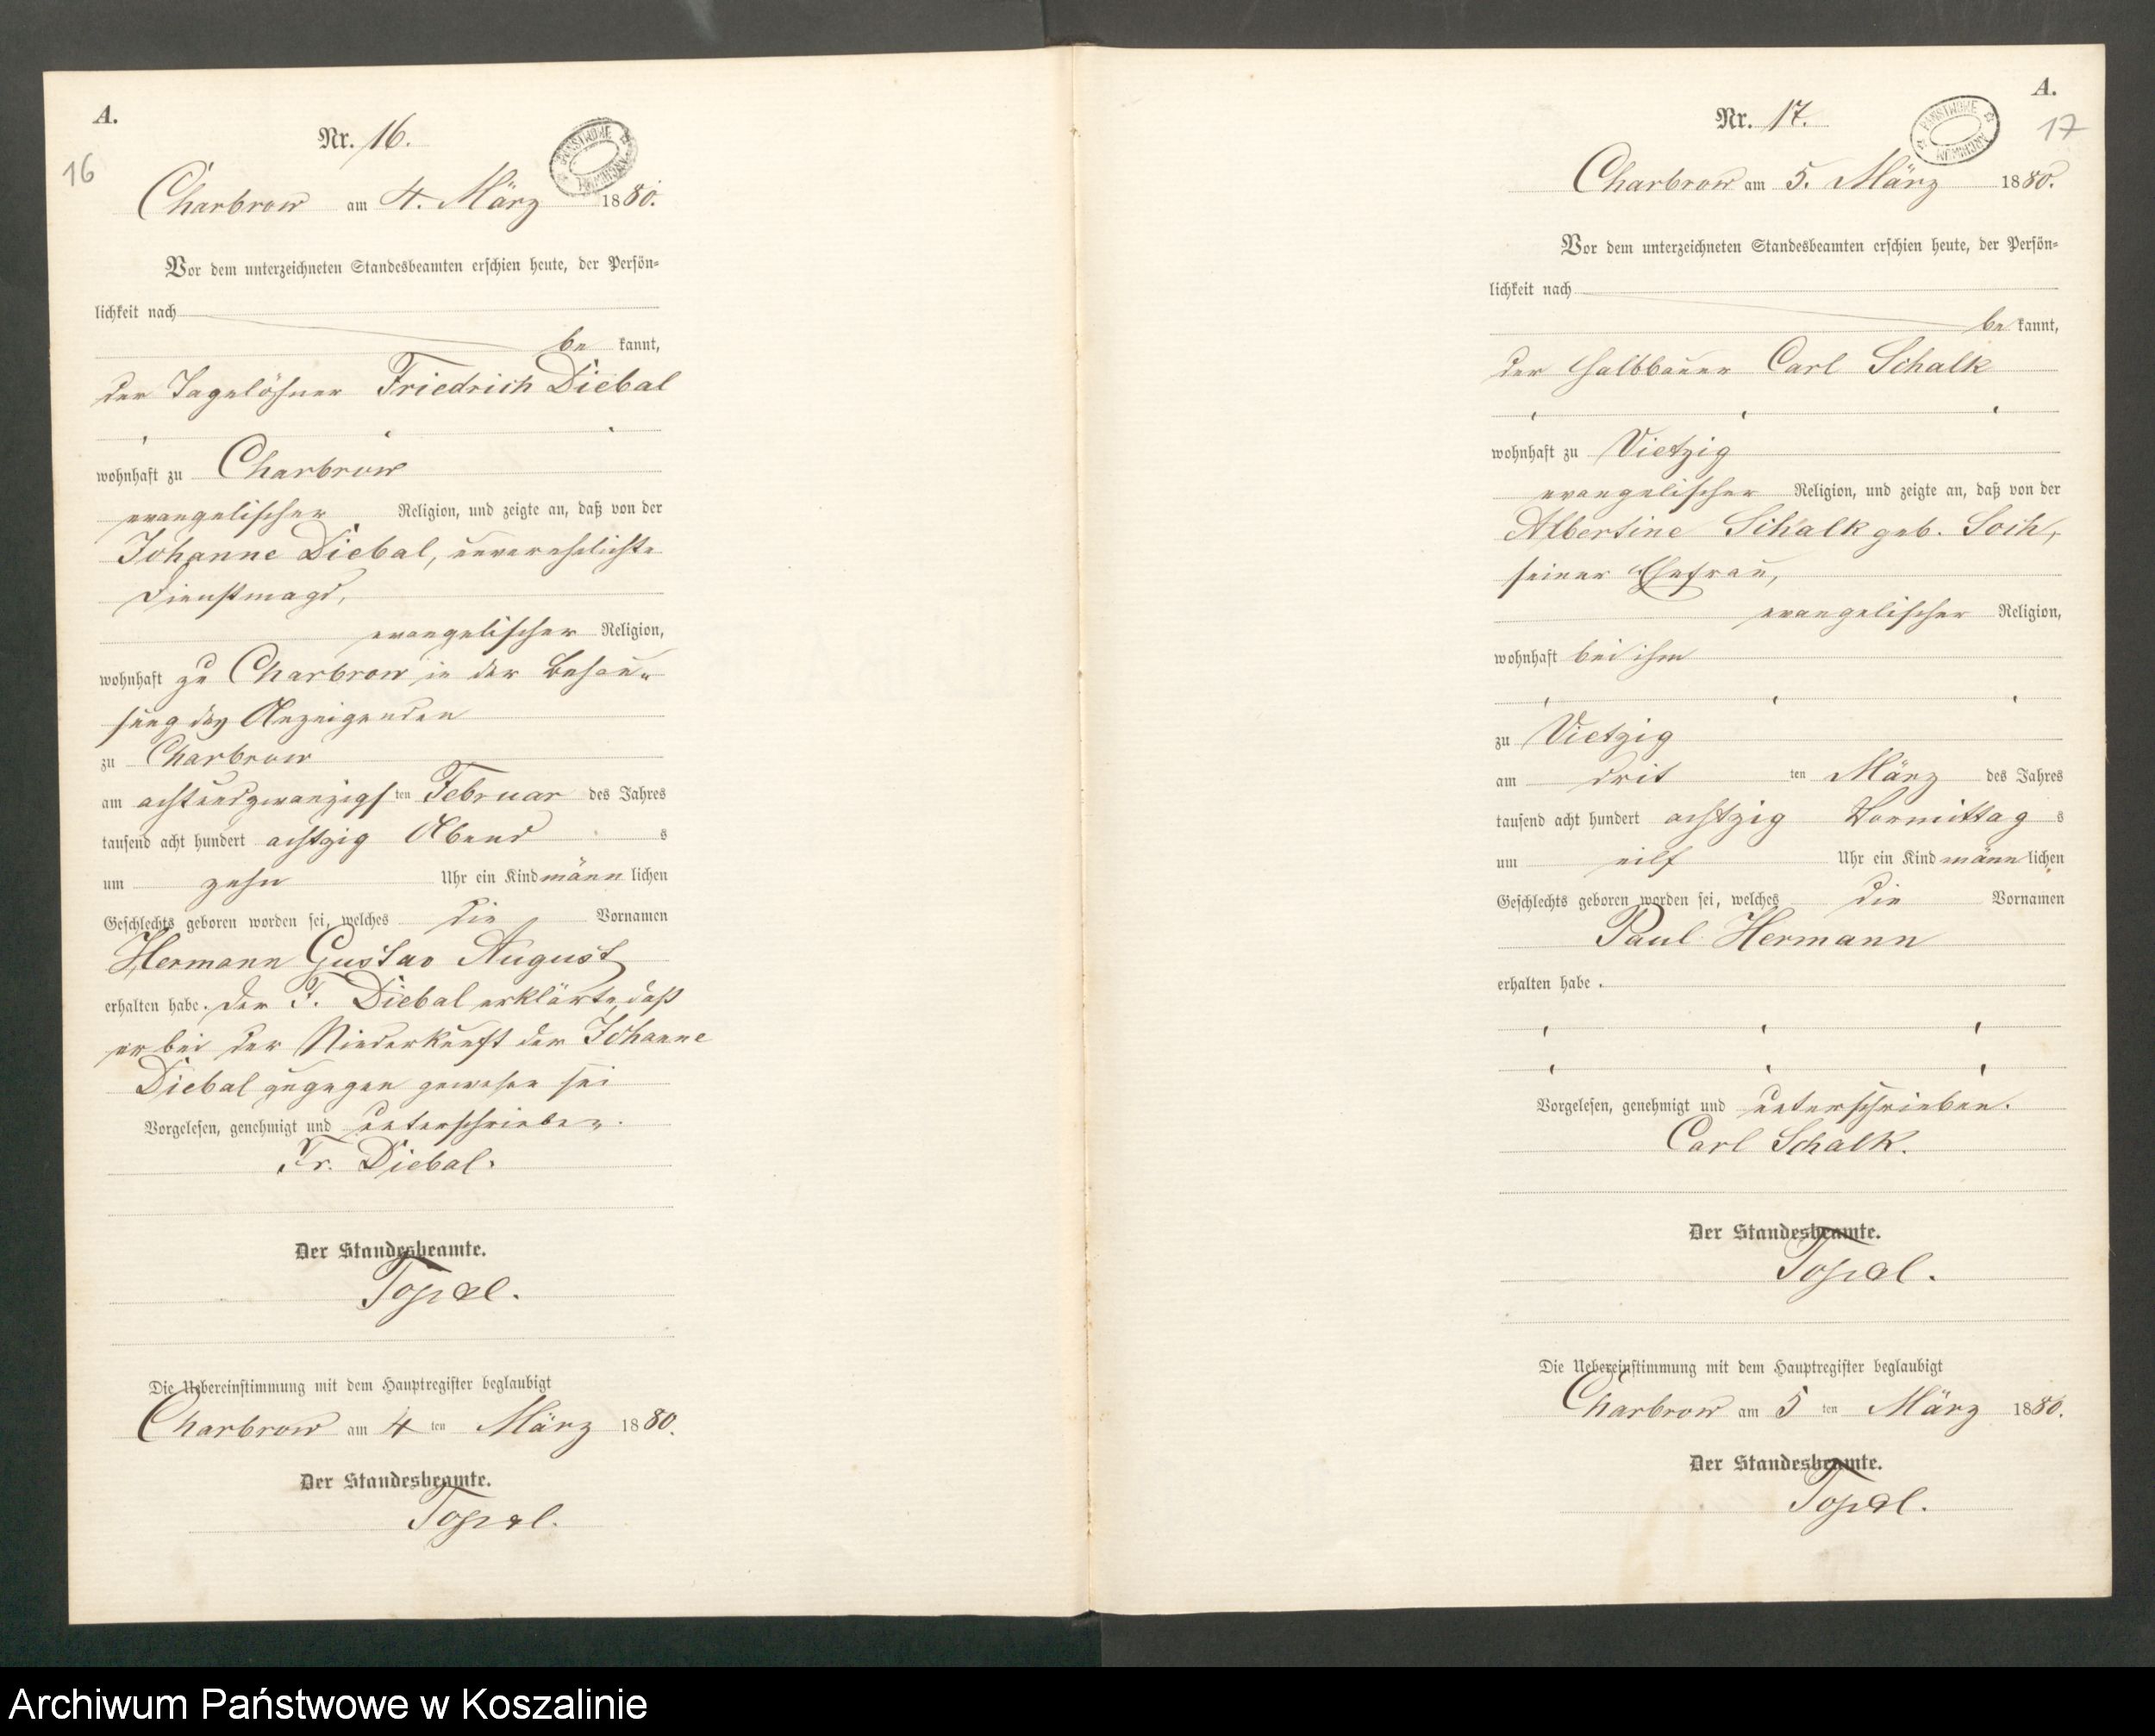 A.
16
Nr. 16.
PAŃSTWOWE ARCHIWUM
Charbrow am 4. März 1880.
Vor dem unterzeichneten Standesbeamten erschien heute, der Persön-
lichkeit nach
be kannt,
der Tagelöhner Friedrich Diebal
wohnhaft zu Charbrow
evangelischer Religion, und zeigte an, daß von der
Johanne Diebal, unverehelichte
Dienstmagd,
evangelischer Religion,
wohnhaft zu Charbrow in der Behau-
sung des Anzeigenden
zu Charbrow
am achtundzwanzigsten Februar des Jahres
tausend acht hundert achtzig Abend s
um zehn Uhr ein Kind männ lichen
Geschlechts geboren worden sei, welches die Vornamen
Hermann Gustav August
erhalten habe. Der F. Diebal erklärte, daß
er bei der Niederkunft der Johanne
Diebal zugegen gewesen sei
Vorgelesen, genehmigt und unterschrieben.
Fr. Diebal.
Der Standesbeamte.
Topel.
Die Uebereinstimmung mit dem Hauptregister beglaubigt
Charbrow am 4 ten März 1880.
Der Standesbeamte.
Topel.
A.
17
Nr. 17.
PAŃSTWOWE ARCHIWUM
Charbrow am 5. März 1880.
Vor dem unterzeichneten Standesbeamten erschien heute, der Persön-
lichkeit nach
be kannt,
der Halbbauer Carl Schalk
wohnhaft zu Vietzig
evangelischer Religion, und zeigte an, daß von der
Albertine Schalk geb. Soih,
seiner Ehefrau,
evangelischer Religion,
wohnhaft bei ihm
zu Vietzig
am drit ten März des Jahres
tausend acht hundert achtzig Vormittag s
um eilf Uhr ein Kind männ lichen
Geschlechts geboren worden sei, welches die Vornamen
Paul Hermann
erhalten habe.
Vorgelesen, genehmigt und unterschrieben.
Carl Schalk.
Der Standesbeamte.
Topel.
Die Uebereinstimmung mit dem Hauptregister beglaubigt
Charbrow am 5 ten März 1880.
Der Standesbeamte.
Topel.
Archiwum Państwowe w Koszalinie